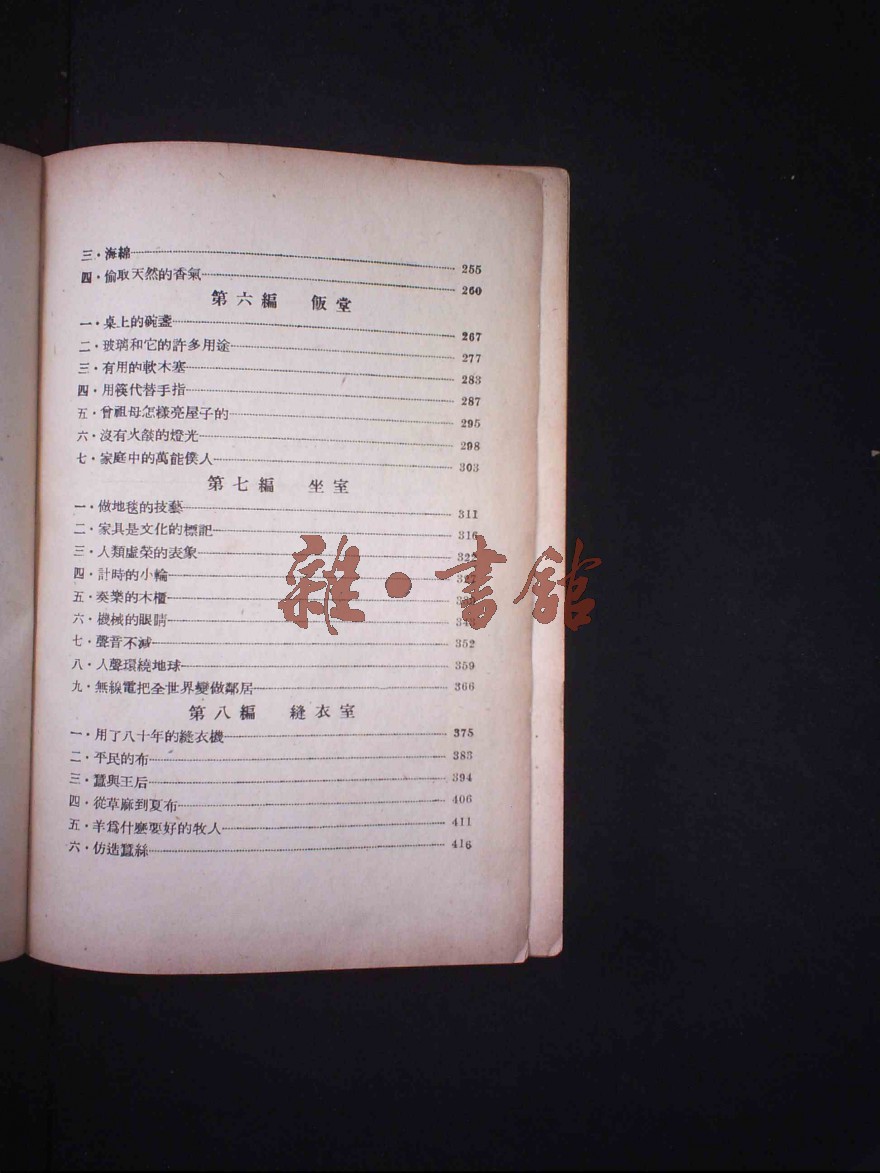 三·海綿 255
四·偷取天然的香氣 260
第六編 飯堂
一·桌上的碗盞 267
二·玻璃和它的許多用途 277
三·有用的軟木塞 283
四·用筷代替手指 287
五·曾祖母怎樣亮屋子的 295
六·沒有火燄的燈光 298
七·家庭中的萬能僕人 303
第七編 坐室
一·做地毯的技藝 311
二·家具是文化的標記 316
三·人類虛荣的表象
四·計時的小輪 327
五·奏樂的木櫃
六·機械的眼睛
七·聲音不滅 352
八·人聲環繞地球 359
九·無線電把全世界變做鄰居 366
第八編 縫衣室
一·用了八十年的縫衣機 375
二·平民的布 383
三·蠶與王后 394
四·從草麻到夏布 406
五·羊爲什麼要好的牧人 411
六·仿造蠶絲 416
雜·書館